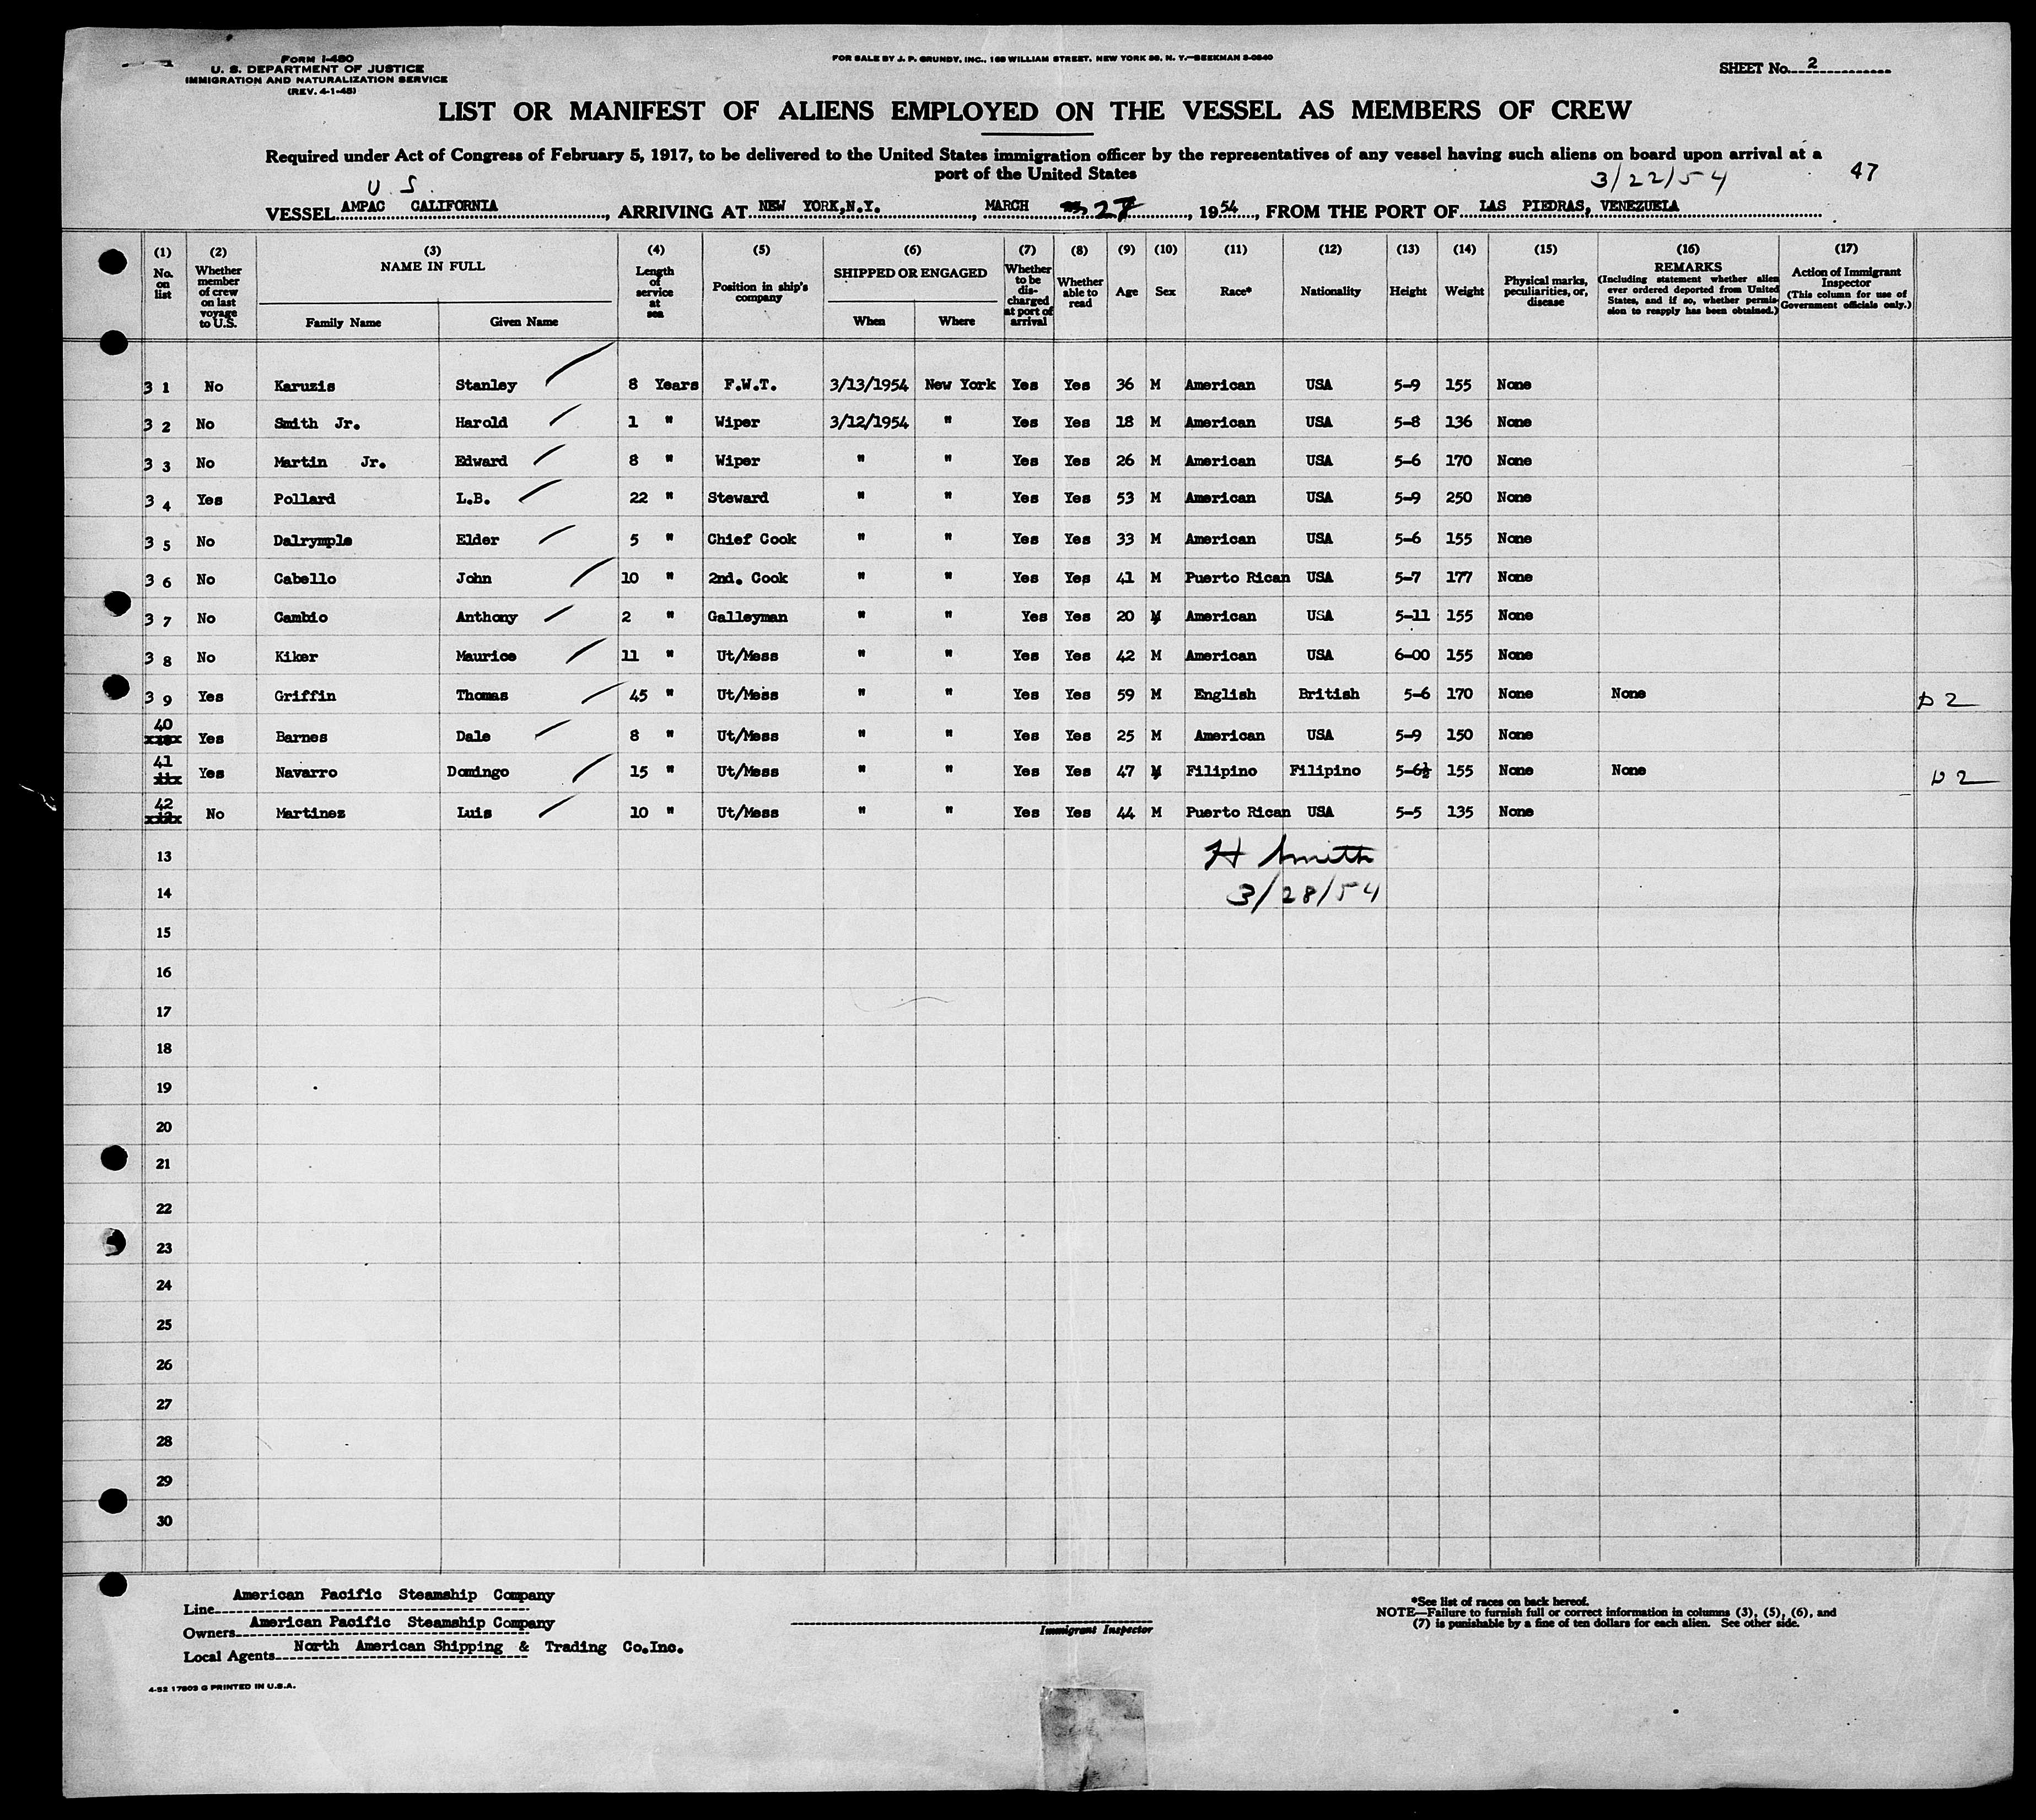 FORM I-480
U. S. DEPARTMENT OF JUSTICE
IMMIGRATION AND NATURALIZATION SERVICE
(REV. 4-1-48)
FOR SALE BY J. P. GRUNDY, INC., 168 WILLIAM STREET, NEW YORK 38, N. Y.—BEEKMAN 3-0840
SHEET No. 2
LIST OR MANIFEST OF ALIENS EMPLOYED ON THE VESSEL AS MEMBERS OF CREW
Required under Act of Congress of February 5, 1917, to be delivered to the United States immigration officer by the representatives of any vessel having such aliens on board upon arrival at a
port of the United States
U. S. 3/22/54 47
VESSEL AMPAC CALIFORNIA, ARRIVING AT NEW YORK,N.Y., MARCH 27, 1954, FROM THE PORT OF LAS PIEDRAS, VENEZUELA
(1) No. on list
(2) Whether member of crew on last voyage to U.S.
(3) NAME IN FULL
Family Name Given Name
(4) Length of service at sea
(5) Position in ship's company
(6) SHIPPED OR ENGAGED
When Where
(7) Whether to be discharged at port of arrival
(8) Whether able to read
(9) Age
(10) Sex
(11) Race*
(12) Nationality
(13) Height
(14) Weight
(15) Physical marks, peculiarities, or, disease
(16) REMARKS (Including statement whether alien ever ordered deported from United States, and if so, whether permission to reapply has been obtained.)
(17) Action of Immigrant Inspector (This column for use of Government officials only.)
3 1 No Karuzis Stanley 8 Years F.W.T. 3/13/1954 New York Yes Yes 36 M American USA 5-9 155 None
3 2 No Smith Jr. Harold 1 " Wiper 3/12/1954 " Yes Yes 18 M American USA 5-8 136 None
3 3 No Martin Jr. Edward 8 " Wiper " " Yes Yes 26 M American USA 5-6 170 None
3 4 Yes Pollard L.B. 22 " Steward " " Yes Yes 53 M American USA 5-9 250 None
3 5 No Dalrymple Elder 5 " Chief Cook " " Yes Yes 33 M American USA 5-6 155 None
3 6 No Cabello John 10 " 2nd. Cook " " Yes Yes 41 M Puerto Rican USA 5-7 177 None
3 7 No Cambio Anthony 2 " Galleyman " " Yes Yes 20 M American USA 5-11 155 None
3 8 No Kiker Maurice 11 " Ut/Mess " " Yes Yes 42 M American USA 6-00 155 None
3 9 Yes Griffin Thomas 45 " Ut/Mess " " Yes Yes 59 M English British 5-6 170 None None D 2
40 Yes Barnes Dale 8 " Ut/Mess " " Yes Yes 25 M American USA 5-9 150 None
41 Yes Navarro Domingo 15 " Ut/Mess " " Yes Yes 47 M Filipino Filipino 5-6½ 155 None None D 2
42 No Martinez Luis 10 " Ut/Mess " " Yes Yes 44 M Puerto Rican USA 5-5 135 None
13 H Smith
14 3/28/54
15
16
17
18
19
20
21
22
23
24
25
26
27
28
29
30
Line American Pacific Steamship Company
Owners American Pacific Steamship Company
Local Agents North American Shipping & Trading Co.Inc.
Immigrant Inspector
*See list of races on back hereof.
NOTE—Failure to furnish full or correct information in columns (3), (5), (6), and
(7) is punishable by a fine of ten dollars for each alien. See other side.
4-52 17803 G PRINTED IN U.S.A.